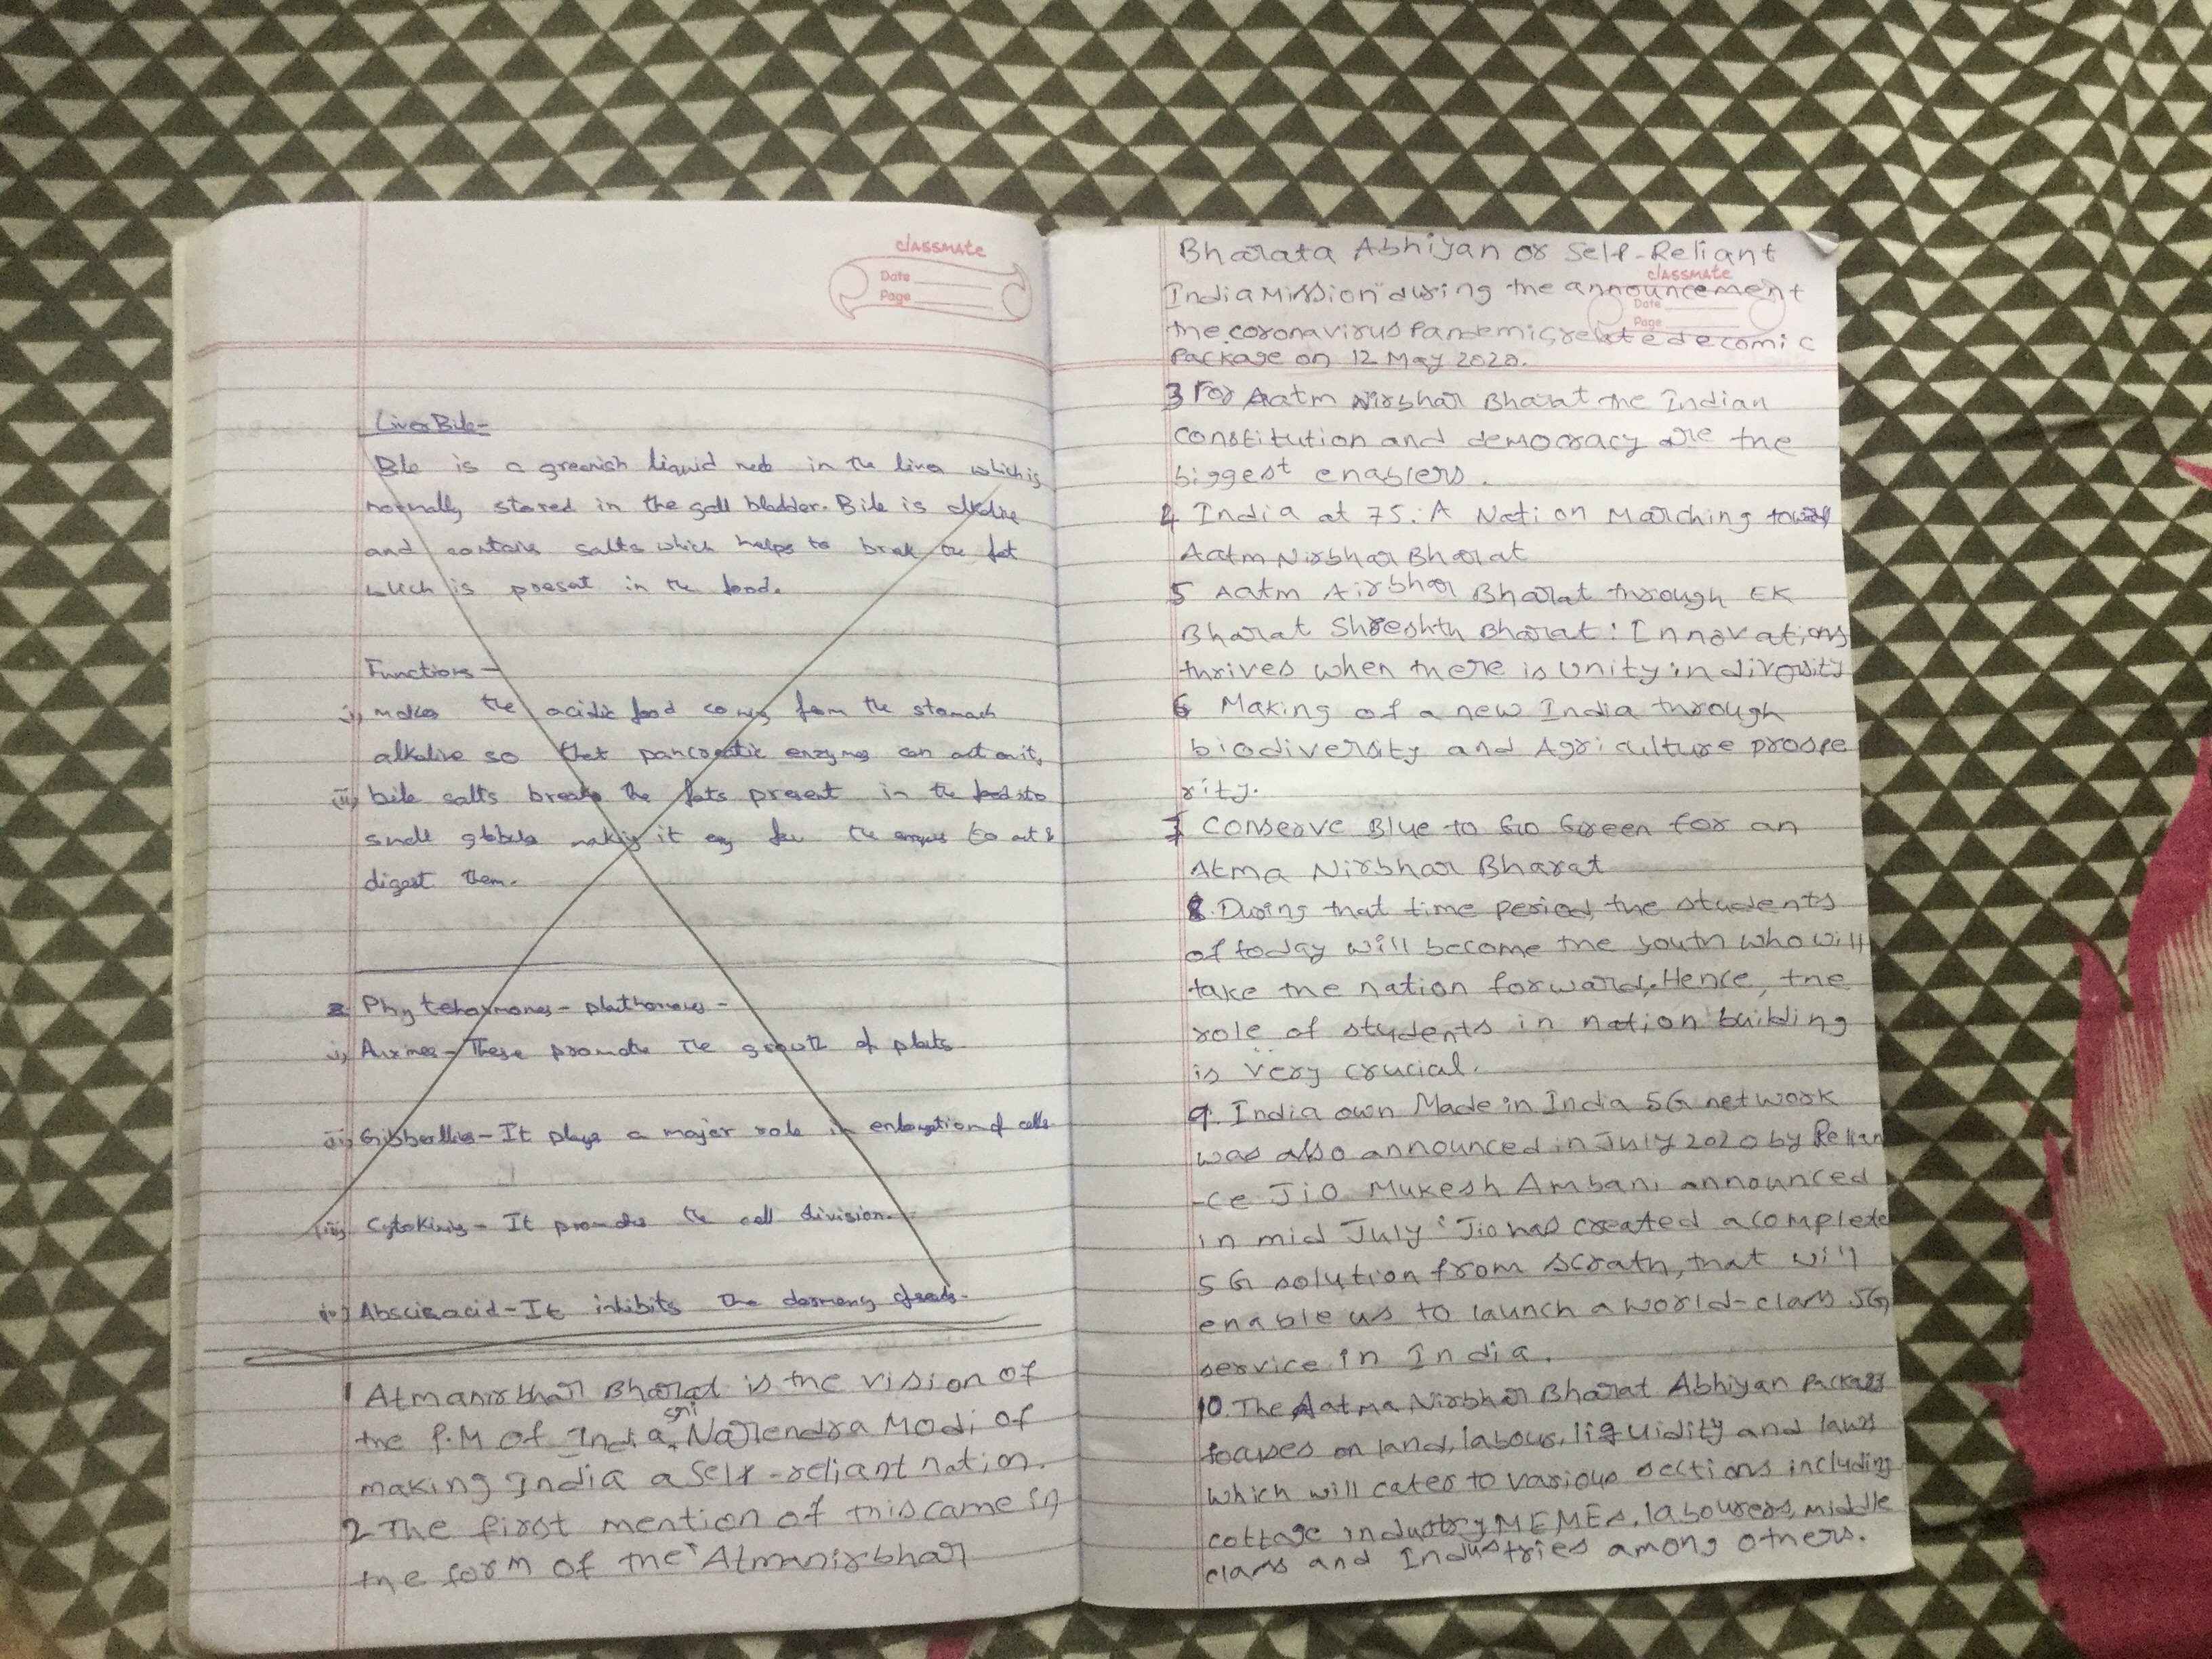 classmate
Date
Page
Liver Bile-
Bile is a greenish liquid in the liver which is
normally stored in the gall bladder. Bile is alkaline
and contains salts which helps to break the fat
which is present in the food.
Functions -
i) makes the acidic food coming from the stomach
alkaline so that pancreatic enzymes can act on it.
ii) bile salts breaks the fats present in the food into
small globules making it easy for the enzymes to act &
digest them.
Phytohormones -
i) Auxines - These promote the growth of plants.
ii) Gibberllins - It plays a major role in enlongation of cells
iii) Cytokinins - It promotes the cell division.
iv) Abscisacid - It inhibits the dormeny of seeds.
1 Atmanirbhar Bharat is the vision of
the P.M of India, Sri Narendra Modi of
making India a self-reliant nation.
2 The first mention of this came in
the form of the 'Atmanirbhar
Bharata Abhiyan or Self-Reliant
classmate
India Mission" during the announcement
Date
Page
the coronavirus Pandemic related ecomic
Package on 12 May 2020.
3 For Aatm Nirbhar Bharat the Indian
constitution and democracy are the
biggest enablers.
4 India at 75: A Nation Marching towards
Aatm Nirbhar Bharat
5 Aatm Airbhar Bharat through EK
Bharat Shreshth Bharat: Innovations
thrives when there is unity in diversity
6 Making of a new India through
biodiversity and Agriculture prospe
rity.
7 Conserve Blue to Go Green for an
Atma Nirbhar Bharat
8. During that time period, the students
of today will become the youth who will
take the nation forward. Hence, the
role of students in nation building
is very crucial.
9. India own Made in India 5G network
was also announced in July 2020 by Relian
-ce Jio Mukesh Ambani announced
in mid July "Jio has created a complete
5G solution from scrath, that will
enable us to launch a world-class 5G
service in India.
10. The Aatma Nirbhar Bharat Abhiyan Package
focuses on land, labour, liquidity and laws
which will cater to various sections including
cottage industry, MEMEs, labourers, middle
class and Industries among others.